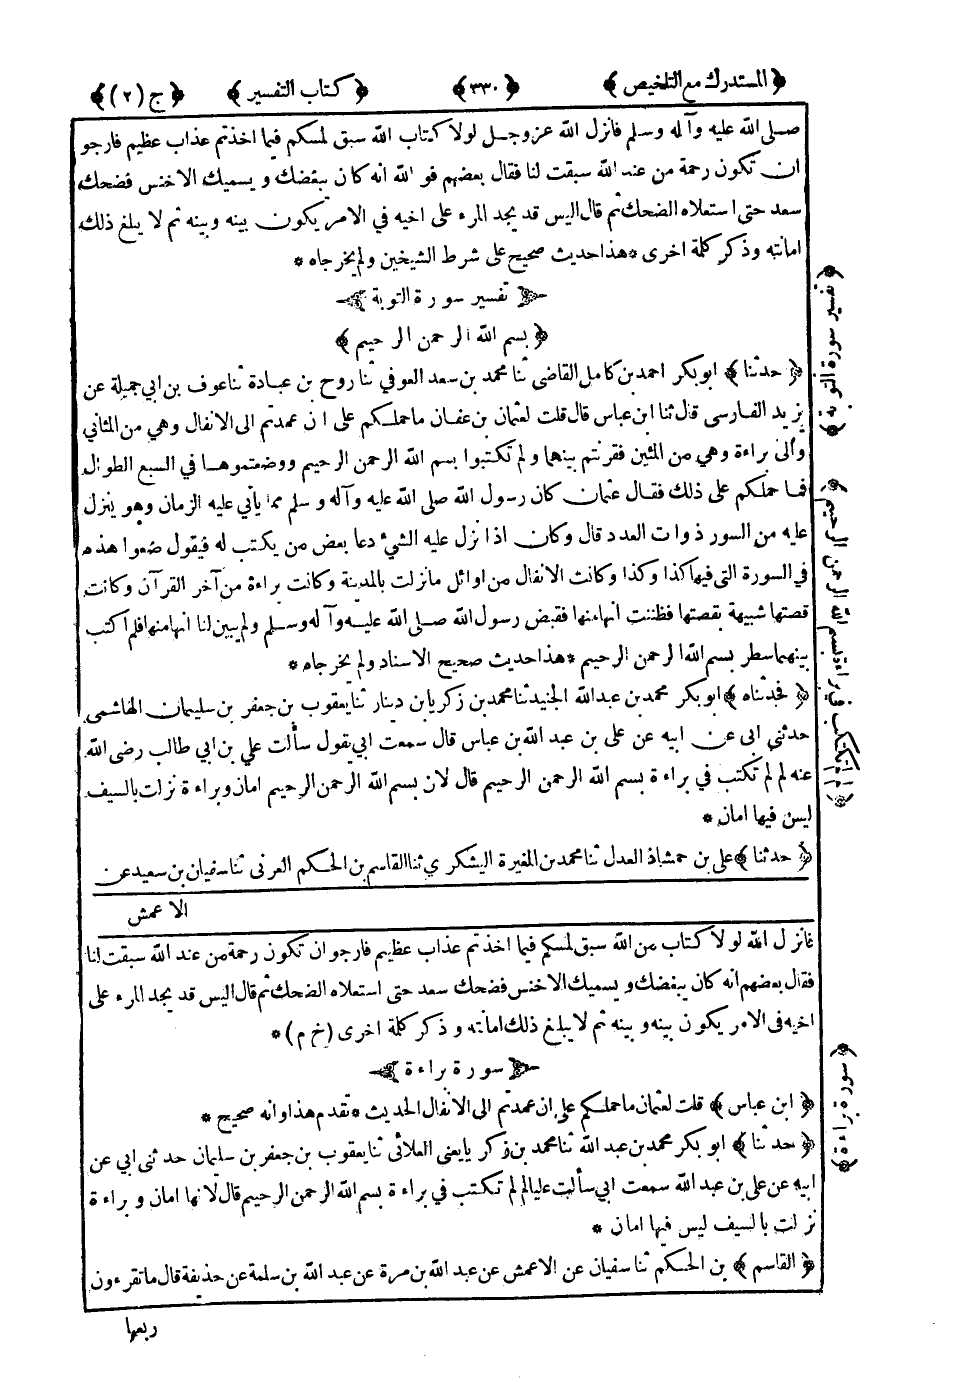 ﴿ المستدرك مع التلخيص ﴾ ﴿ ٣٣٠ ﴾ ﴿ كتاب التفسير ﴾ ﴿ ج (٢) ﴾
صلى الله عليه وآله وسلم فانزل الله عزوجل لولا كتاب الله سبق لمسكم فيما اخذتم عذاب عظيم فارجو
ان تكون رحمة من عند الله سبقت لنا فقال بعضهم فو الله انه كان يبغضك ويسميك الاخنس فضحك
سعد حتى استعلاه الضحك ثم قال اليس قد يجد المرء على اخيه في الامر يكون بينه وبينه ثم لا يبلغ ذلك
امانته وذكر كلمة اخرى * هذا حديث صحيح على شرط الشيخين ولم يخرجاه *
تفسير سورة التوبة
﴿ بسم الله الرحمن الرحيم ﴾
﴿ حدثنا ﴾ ابو بكر احمد بن كامل القاضى ثنا محمد بن سعد العوفي ثنا روح بن عبادة ثنا عوف بن ابي جميلة عن
يزيد الفارسى قال ثنا ابن عباس قال قلت لعثمان بن عفان ما حملكم على ان عمدتم الى الانفال وهي من المثاني
والى براءة وهي من المئين فقرنتم بينهما ولم تكتبوا بسم الله الرحمن الرحيم ووضعتموها في السبع الطوال
فما حملكم على ذلك فقال عثمان كان رسول الله صلى الله عليه وآله وسلم مما يأتي عليه الزمان وهو ينزل
عليه من السور ذوات العدد قال وكان اذا نزل عليه الشيء دعا بعض من يكتب له فيقول ضعوا هذه
في السورة التى فيها كذا وكذا وكانت الانفال من اوائل ما نزلت بالمدينة وكانت براءة من آخر القرآن وكانت
قصتها شبيهة بقصتها فظننت انها منها فقبض رسول الله صلى الله عليه وآله وسلم ولم يبين لنا انها منها فلم اكتب
بينهما سطر بسم الله الرحمن الرحيم * هذا حديث صحيح الاسناد ولم يخرجاه *
﴿ فحدثناه ﴾ ابو بكر محمد بن عبدالله الجنيد ثنا محمد بن زكريا بن دينار ثنا يعقوب بن جعفر بن سليمان الهاشمى
حدثني ابى عن ابيه عن على بن عبد الله بن عباس قال سمعت ابي يقول سألت علي بن ابي طالب رضى الله
عنه لم لم تكتب في براءة بسم الله الرحمن الرحيم قال لان بسم الله الرحمن الرحيم امان وبراءة نزلت بالسيف
ليس فيها امان *
﴿ حدثنا ﴾ علي بن حمشاذ العدل ثنا محمد بن المغيرة اليشكري ثنا القاسم بن الحكم العرنى ثنا سفيان بن سعيد عن
الاعمش
فانزل الله لولا كتاب من الله سبق لمسكم فيما اخذتم عذاب عظيم فارجو ان تكون رحمة من عند الله سبقت لنا
فقال بعضهم انه كان يبغضك ويسميك الاخنس فضحك سعد حتى استعلاه الضحك ثم قال اليس قد يجد المرء على
اخيه فى الامر يكون بينه وبينه ثم لا يبلغ ذلك امانته وذكر كلمة اخرى (خ م) *
سورة براءة
﴿ ابن عباس ﴾ قلت لعثمان ما حملكم على ان عمدتم الى الانفال الحديث * تقدم هذا وانه صحيح *
﴿ حدثنا ﴾ ابو بكر محمد بن عبد الله ثنا محمد بن زكريا يعنى الغلابي ثنا يعقوب بن جعفر بن سليمان حدثنى ابي عن
ابيه عن علي بن عبد الله سمعت ابي سألت عليا لم لم تكتب في براءة بسم الله الرحمن الرحيم قال لانها امان وبراءة
نزلت بالسيف ليس فيها امان *
﴿ القاسم ﴾ بن الحكم ثنا سفيان عن الاعمش عن عبد الله بن مرة عن عبد الله بن سلمة عن حذيفة قال ما تقرءون
ربعها
﴿ تفسير سورة التوبة ﴾
﴿ لم تكتب في براءة بسم الله الرحمن الرحيم ﴾
﴿ سورة براءة ﴾